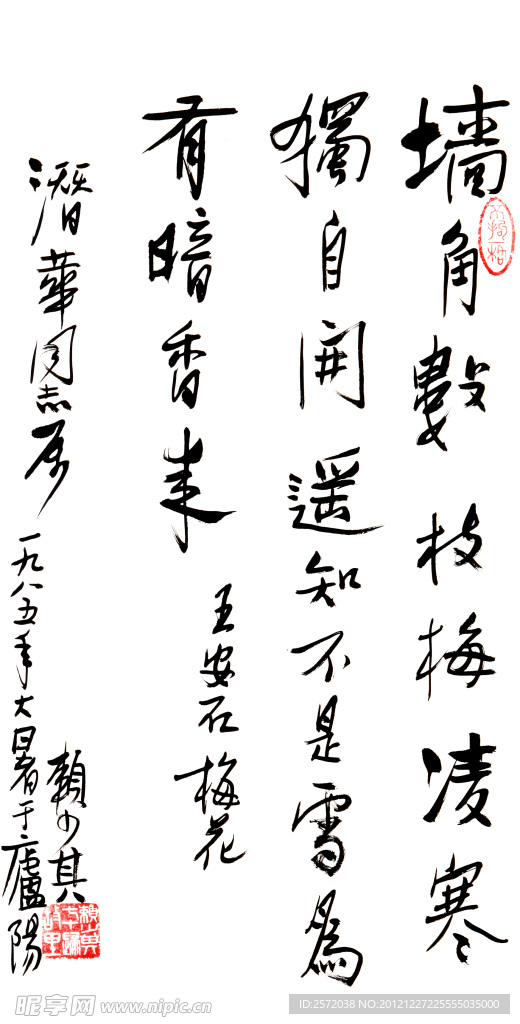 墙角數枝梅凌寒
獨自開遥知不是雪爲
有暗香来
王安石梅花
潛華同志属
一九八五年大暑于廬陽
賴少其
昵享网 www.nipic.cn
ID:2572038 NO:20121227225555035000